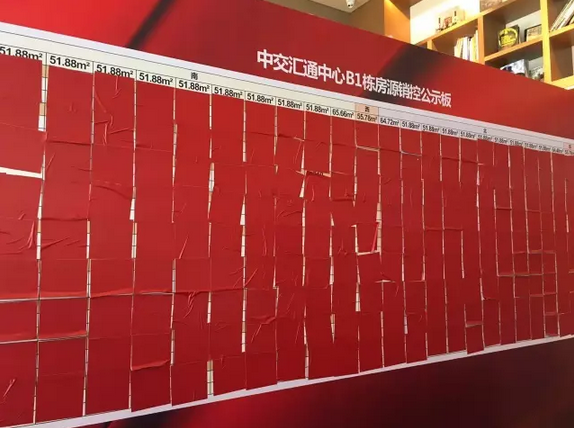 中交汇通中心B1栋房源销控公示板
南 西 北
51.88m² 51.88m² 51.88m² 51.88m² 51.88m² 51.88m² 51.88m² 51.88m² 51.88m² 65.66m² 55.76m² 64.72m² 51.88m² 51.88m² 51.88m² 51.88m² 51.88m²